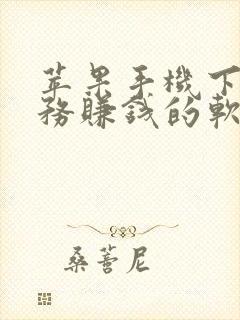 苹果手機下
務賺錢的軟
桑蕾尼